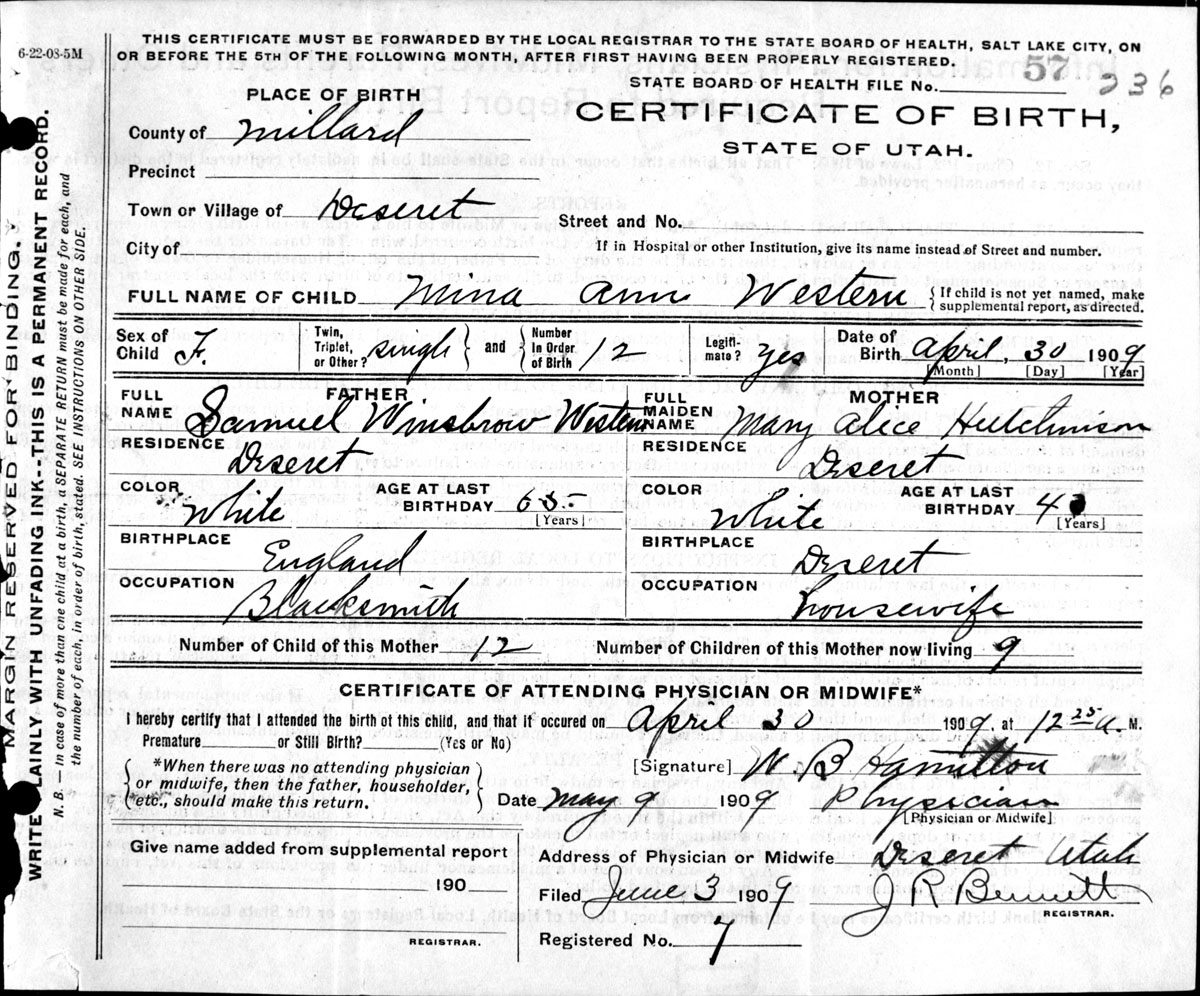 6-22-08-5M
THIS CERTIFICATE MUST BE FORWARDED BY THE LOCAL REGISTRAR TO THE STATE BOARD OF HEALTH, SALT LAKE CITY, ON
OR BEFORE THE 5TH OF THE FOLLOWING MONTH, AFTER FIRST HAVING BEEN PROPERLY REGISTERED.
STATE BOARD OF HEALTH FILE No. 57 236
PLACE OF BIRTH
CERTIFICATE OF BIRTH,
STATE OF UTAH.
County of Millard
Precinct
Town or Village of Deseret
Street and No.
City of
If in Hospital or other Institution, give its name instead of Street and number.
FULL NAME OF CHILD Mina Ann Western { If child is not yet named, make
supplemental report, as directed.
Sex of Child F. Twin, Triplet, or Other? single and Number in Order of Birth 12 Legitimate? yes Date of Birth April 30 1909
[Month] [Day] [Year]
FATHER
FULL NAME Samuel Winsbrow Western
RESIDENCE Deseret
COLOR White AGE AT LAST BIRTHDAY 65
[Years]
BIRTHPLACE England
OCCUPATION Blacksmith
MOTHER
FULL MAIDEN NAME Mary Alice Hutchinson
RESIDENCE Deseret
COLOR White AGE AT LAST BIRTHDAY
[Years]
BIRTHPLACE Deseret
OCCUPATION housewife
Number of Child of this Mother 12 Number of Children of this Mother now living 9
CERTIFICATE OF ATTENDING PHYSICIAN OR MIDWIFE*
I hereby certify that I attended the birth of this child, and that it occured on April 30 1909, at 12 25 a. M.
Premature or Still Birth? (Yes or No)
[Signature] W. B Hamilton
*When there was no attending physician
or midwife, then the father, householder,
etc., should make this return.
Date May 9 1909 Physician
[Physician or Midwife]
Give name added from supplemental report
190
REGISTRAR.
Address of Physician or Midwife Deseret Utah
Filed June 3 1909 J R Bennett
REGISTRAR.
Registered No. 7
MARGIN RESERVED FOR BINDING.
WRITE PLAINLY WITH UNFADING INK--THIS IS A PERMANENT RECORD.
N. B.— In case of more than one child at a birth, a SEPARATE RETURN must be made for each, and
the number of each, in order of birth, stated. SEE INSTRUCTIONS ON OTHER SIDE.